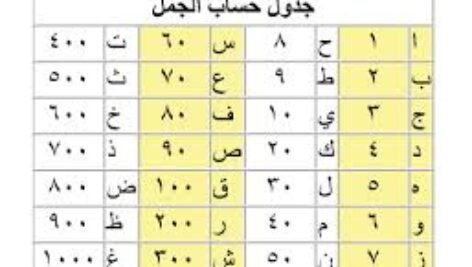 جدول حساب الجمل
ا ١ ح ٨ س ٦٠ ت ٤٠٠
ب ٢ ط ٩ ع ٧٠ ث ٥٠٠
ج ٣ ي ١٠ ف ٨٠ خ ٦٠٠
د ٤ ك ٢٠ ص ٩٠ ذ ٧٠٠
ه ٥ ل ٣٠ ق ١٠٠ ض ٨٠٠
و ٦ م ٤٠ ر ٢٠٠ ظ ٩٠٠
ز ٧ ن ٥٠ ش ٣٠٠ غ ١٠٠٠